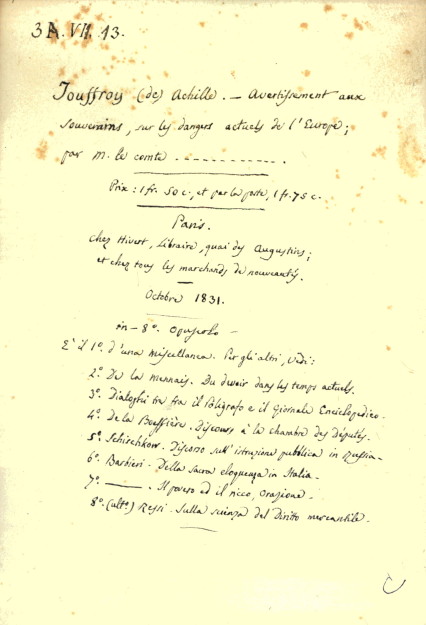 3A. VII. 13.
Jouffroy (de) Achille. — Avertissement aux
souverains, sur les dangers actuels de l'Europe;
par M. le comte ----------- .
Prix: 1 fr. 50 c., et par la poste, 1 fr. 75 c.
Paris.
Chez Hivert, Libraire, quai des Augustins;
et chez tous les marchands de nouveautés.
Octobre 1831.
in-8°. Opuscolo —
E' il 1°. d'una miscellanea. Per gli altri, vedi:
2°. De la Mennais. Du devoir dans les temps actuels.
3°. Dialoghi tre fra il Poligrafo e il Giornale Enciclopedico.
4°. De la Boëssière. Discours à la chambre des députés.
5°. Schirchkow. Discorso sull' istruzione pubblica in Russia.
6°. Barbieri. Della sacra eloquenza in Italia.
7°. ——. Il povero ed il ricco, orazione.
8°. (ult°.) Ressi. Sulla scienza del Diritto mercantile.